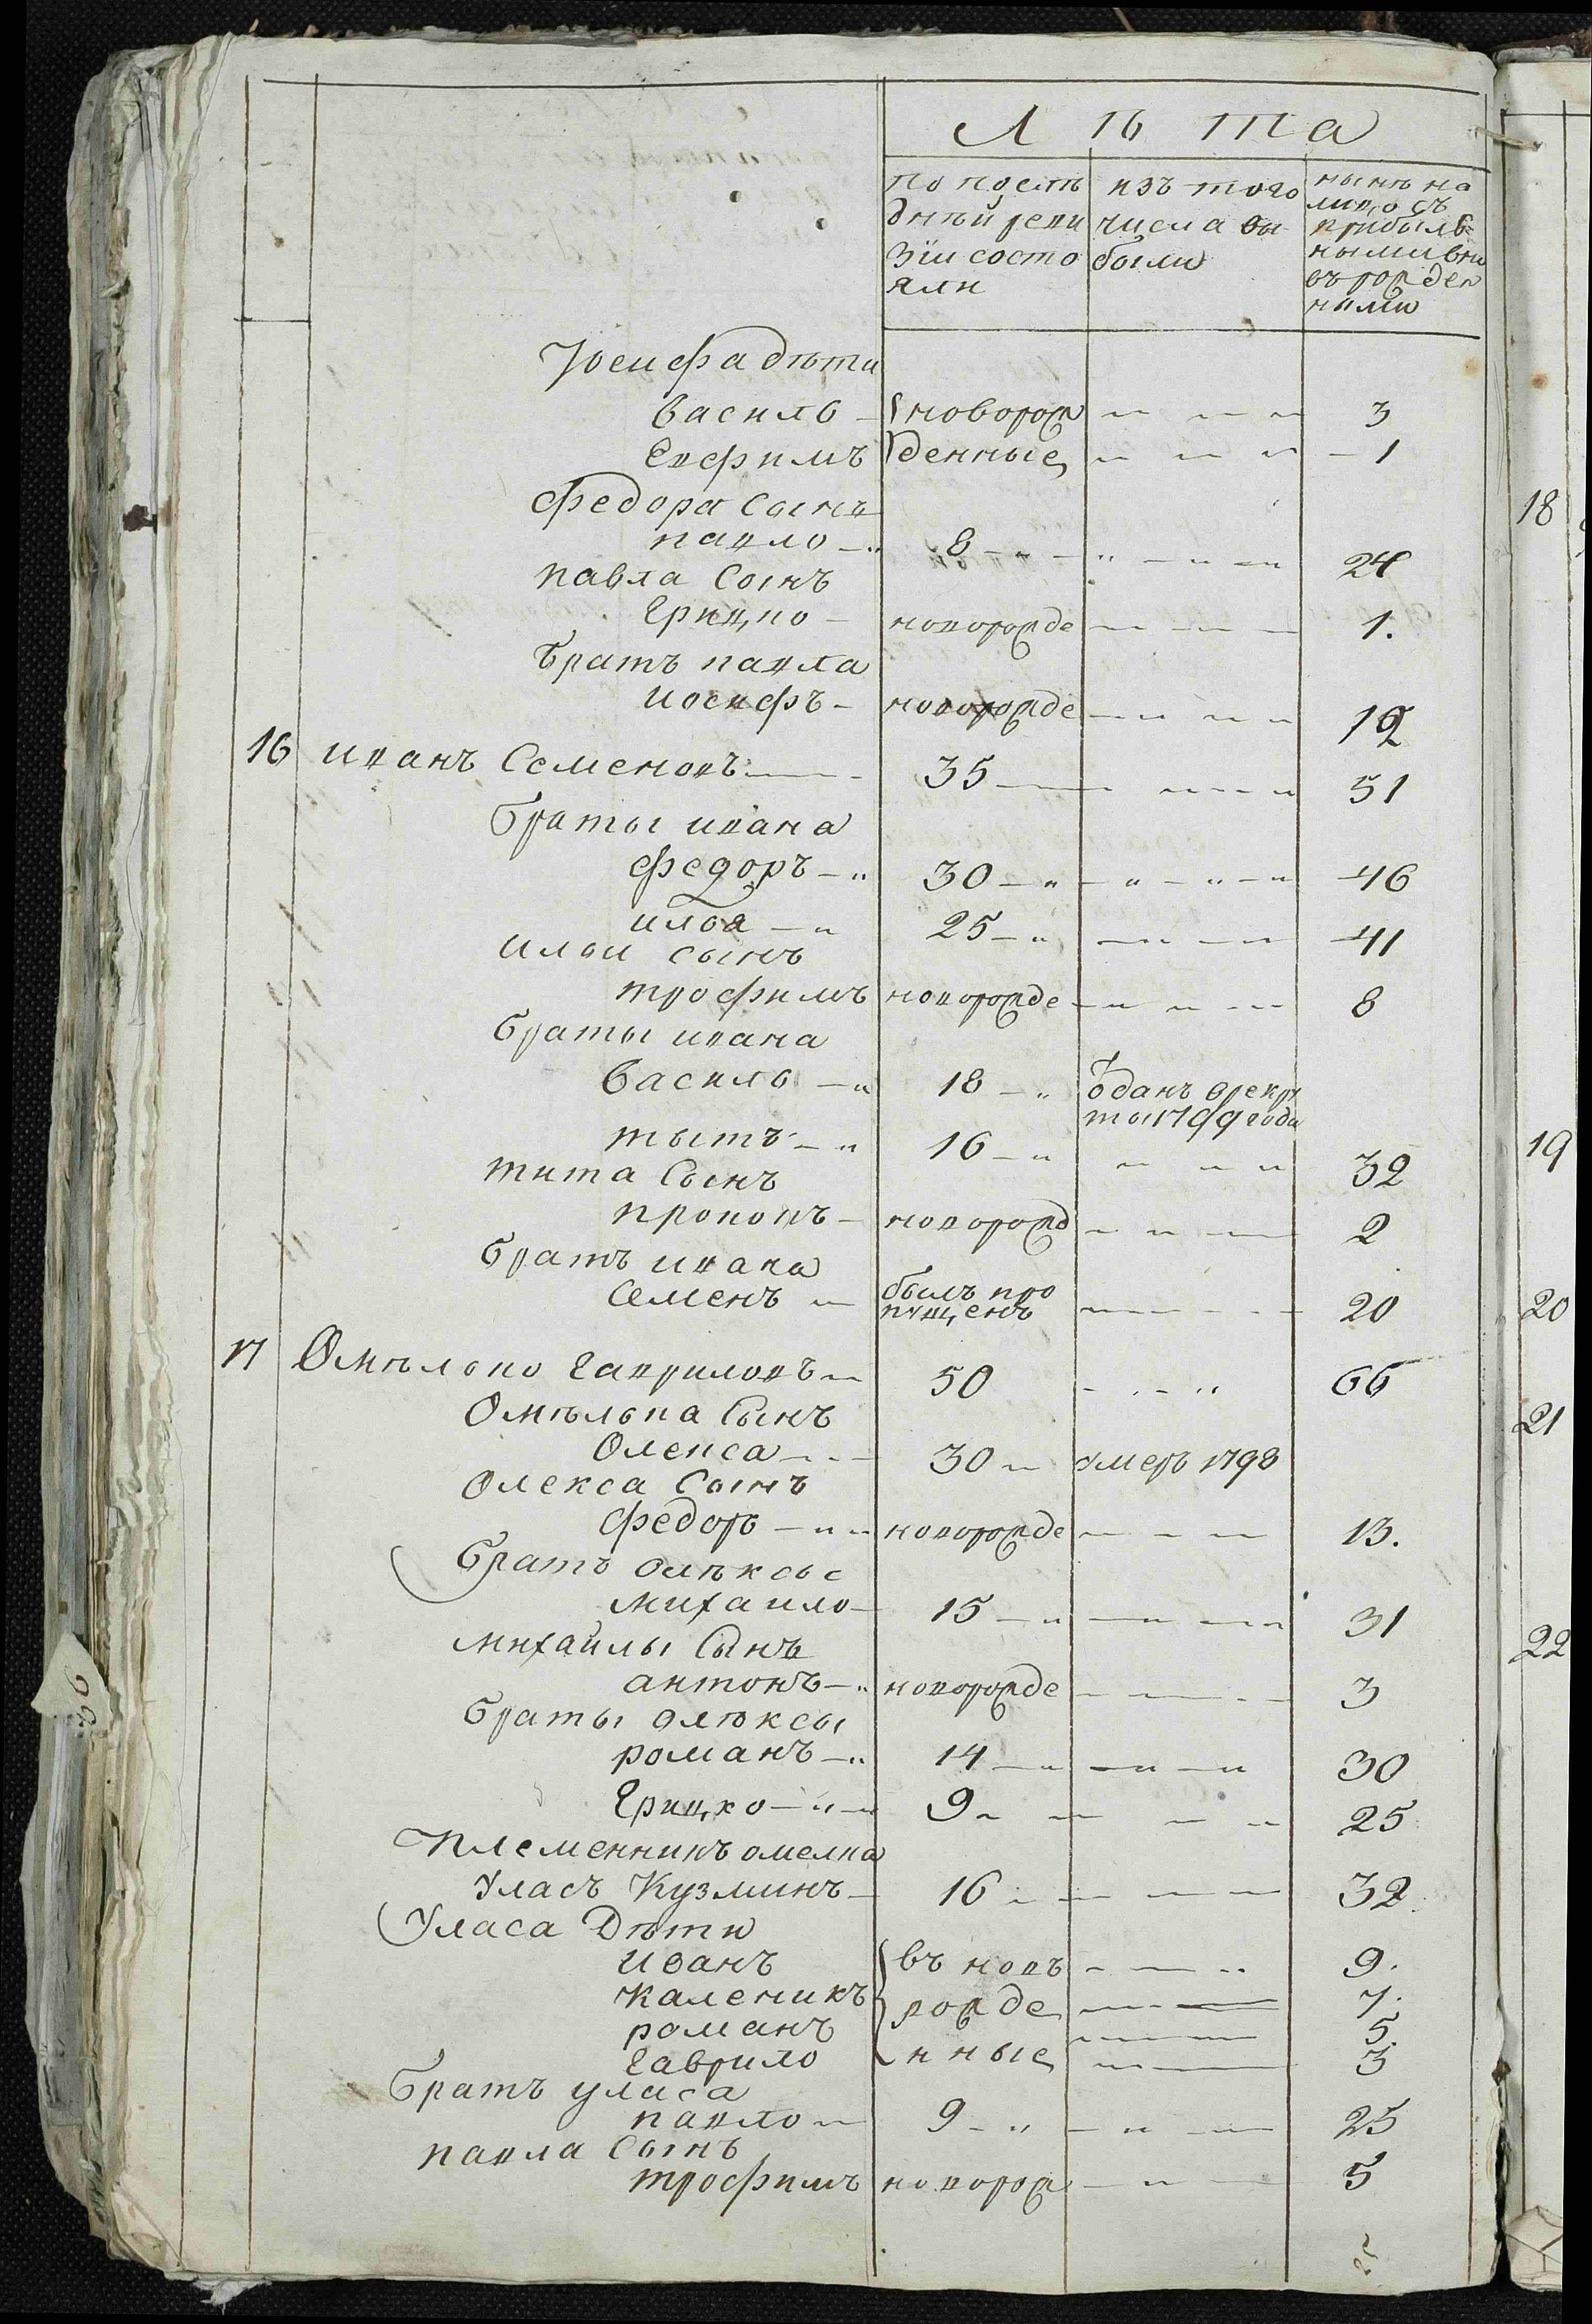 Лѣта
по послѣ изъ того нынѣ на
днѣй реви числа вы лицо съ
зїи состо были прибыль
яли ными вно
въ рожден
ными
Юсифа дѣти
Василь новорож 3
Евфимъ денные 1
Федора Сынъ
павло 8 24
павла Сынъ
Грицко новорожде 1.
Братъ павла
иосифъ новорожде
16 иванъ Семеновъ 35 51
Браты ивана
Федоръ 30 46
илья 25 41
ильи сынъ
трофимъ новорожде 8
Браты ивана
Василь 18 оданъ врекру
ты 1799 года
тытъ 16 32
тита Сынъ
прокопъ новорожд 2
Братъ ивана
Семенъ былъ про 20
пущенъ
17 Омѣлько Гавриловъ 50 66
Омѣлька Сынъ
Олекса 30 умеръ 1798
Олекса Сынъ
Федоръ новорожде 13.
Братъ олѣксы
михаило 15 31
михайлы Сынъ
антонъ новорожде 3
Браты олѣксы
романъ 14 30
Грицко 9 25
Племенникъ омелка
Уласъ Кузминъ 16 32
Уласа Дѣти
Иванъ въ новъ 9.
Каленикъ рожде 7.
романъ 5.
Гаврило нные 3
Братъ уласа
павло 9 25
павла Сынъ
трофимъ новорож 5
18
19
20
21
22